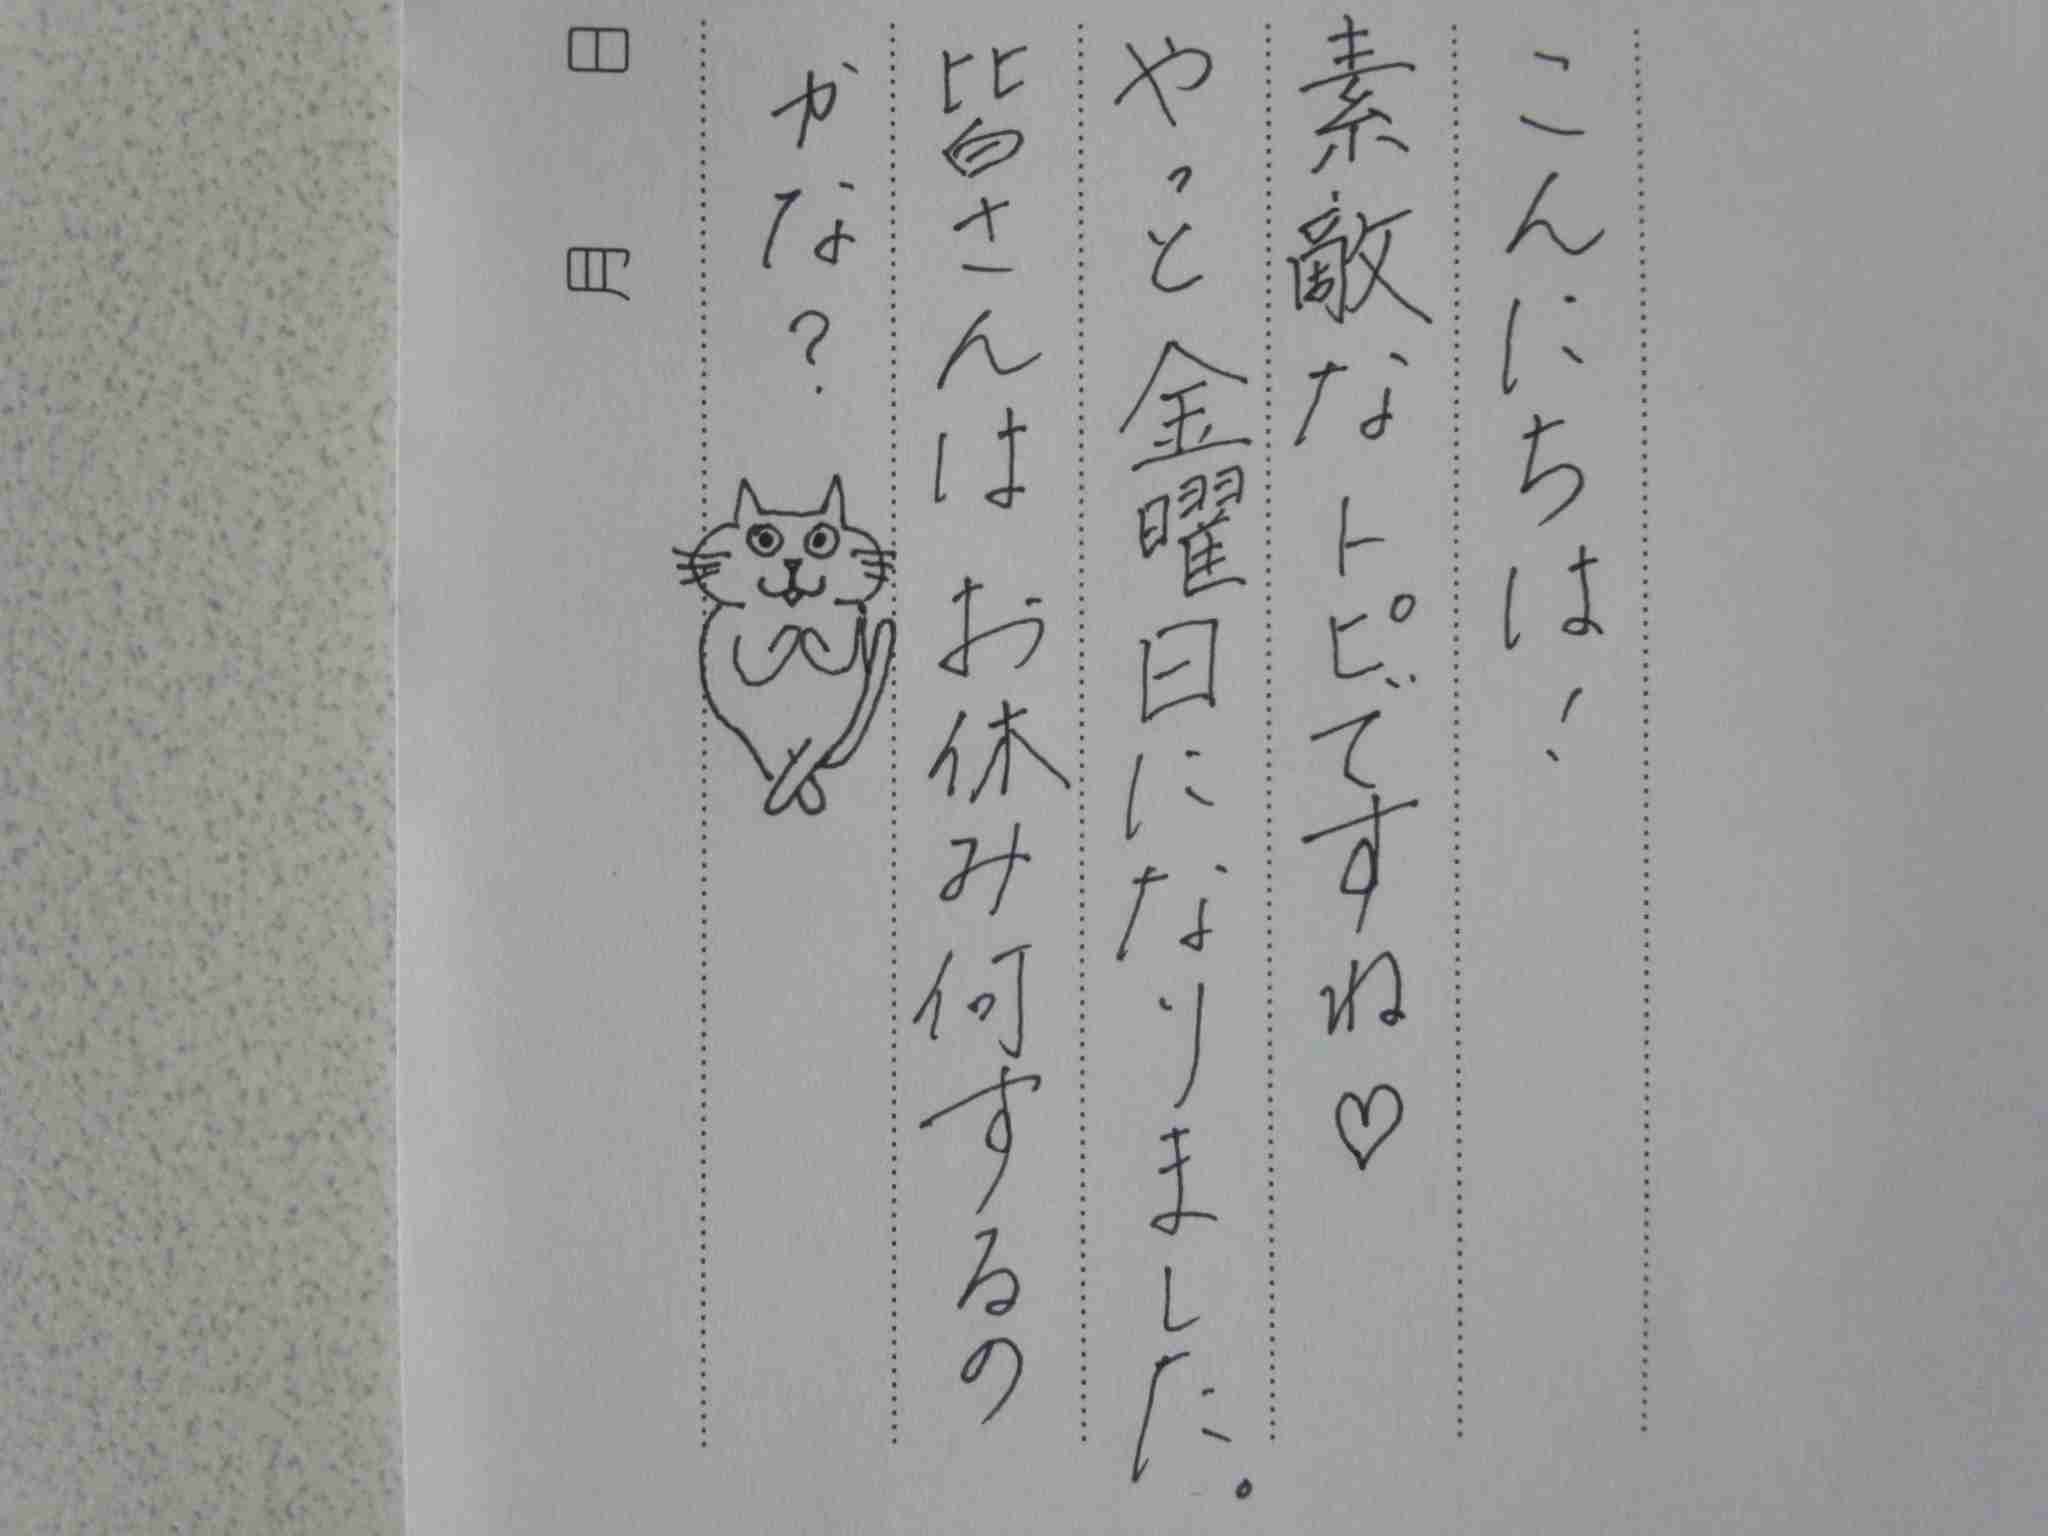 こんにちは!
素敵なトピですね♡
やっと金曜日になりました。
皆さんはお休み何するの
かな?
日 月